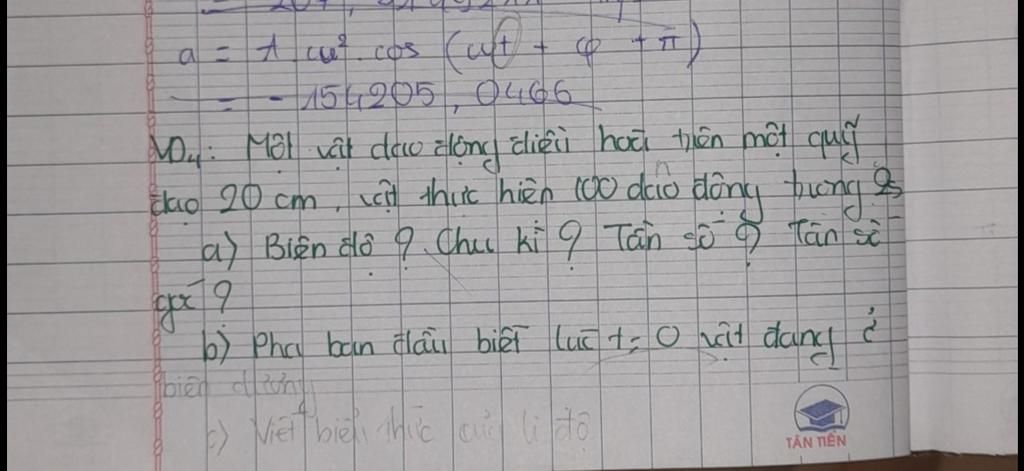 a = A ω² cos (ωt + φ + π)
= - 154205,0466
VD4: Một vật dao động điều hoà trên một quỹ
đạo 20 cm, vật thực hiện 100 dao động trong 2s
a) Biên độ ? Chu kì ? Tần số ? Tần số
góc ?
b) Pha ban đầu biết lúc t = 0 vật đang ở
biên dương
c) Viết biểu thức của li độ
TÂN TIẾN